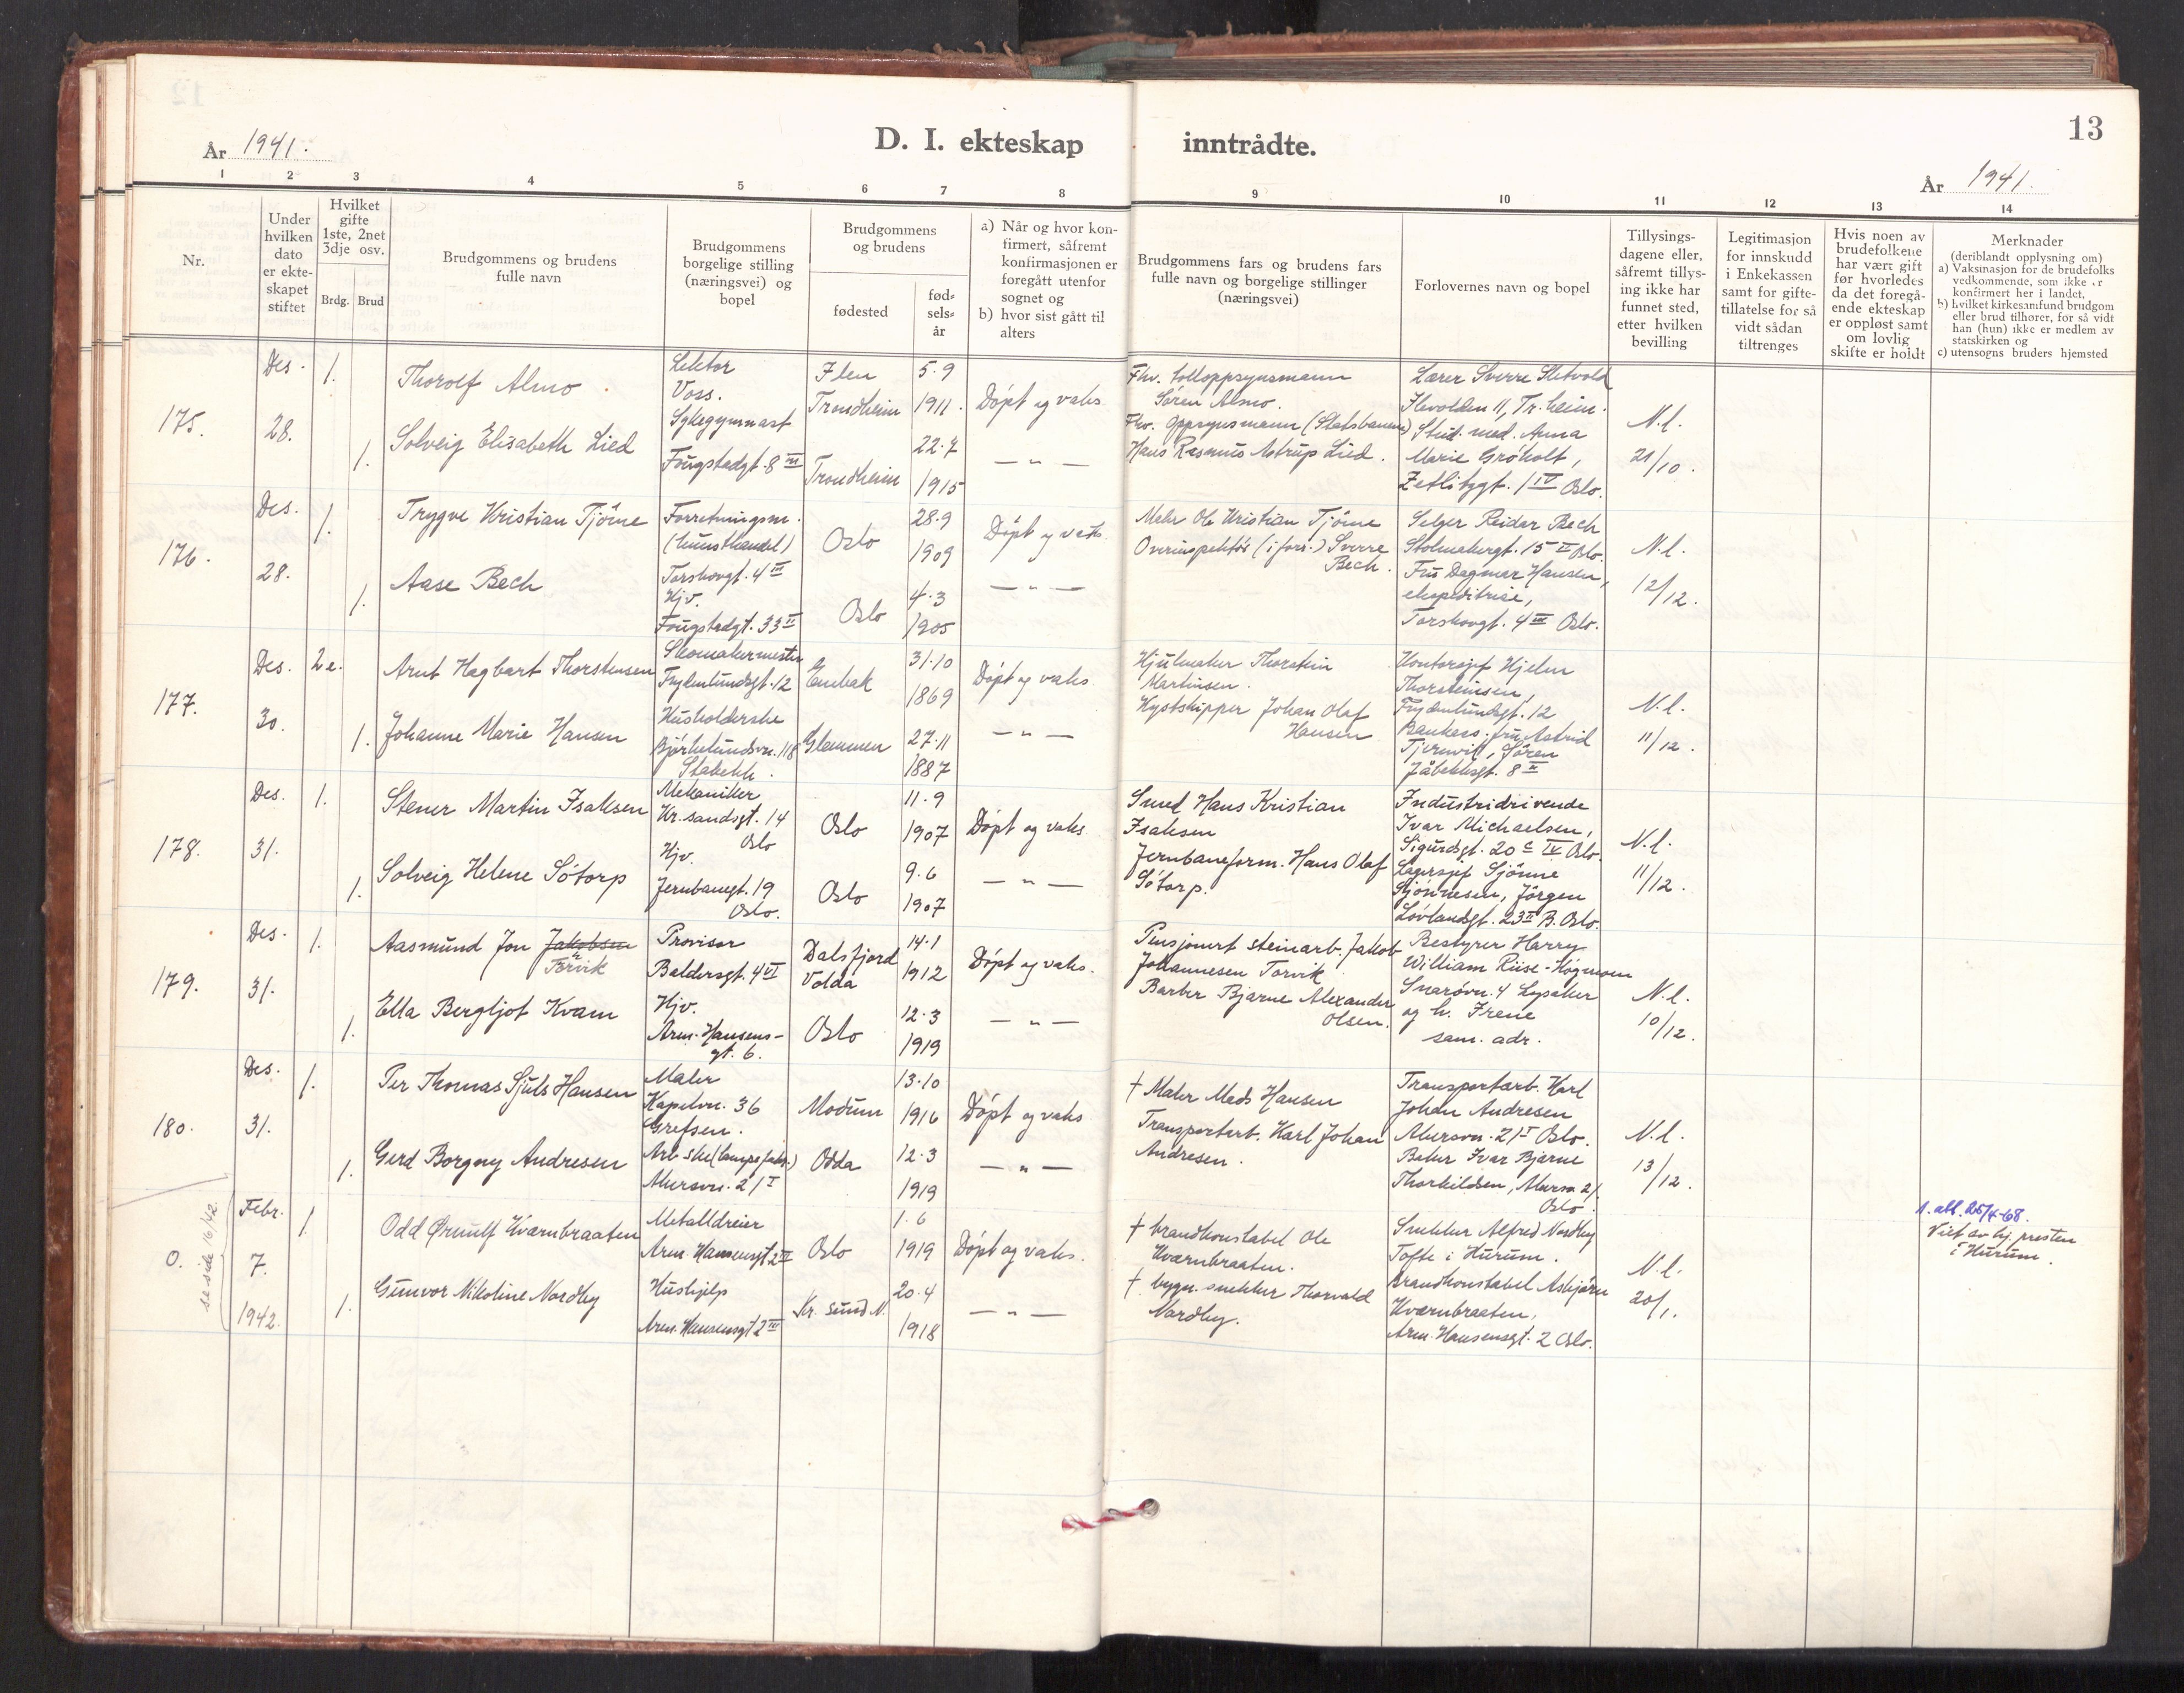 13
År 1941.
D. I. ekteskap inntrådte.
År 1941.
1 2 3 4 5 6 7 8 9 10 11 12 13 14
Nr.
Under hvilken dato er ekte-skapet stiftet
Hvilket gifte 1ste, 2net 3dje osv.
Brdg. Brud
Brudgommens og brudens fulle navn
Brudgommens borgelige stilling (næringsvei) og bopel
Brudgommens og brudens
fødested
fød-sels-år
a) Når og hvor kon-firmert, såfremt konfirmasjonen er foregått utenfor sognet og
b) hvor sist gått til alters
Brudgommens fars og brudens fars fulle navn og borgelige stillinger (næringsvei)
Forlovernes navn og bopel
Tillysings-dagene eller, såfremt tillys-ing ikke har funnet sted, etter hvilken bevilling
Legitimasjon for innskudd i Enkekassen samt for gifte-tillatelse for så vidt sådan tiltrenges
Hvis noen av brudefolkene har vært gift før hvorledes da det foregå-ende ekteskap er oppløst samt om lovlig skifte er holdt
Merknader
(deriblandt opplysning om)
a) Vaksinasjon for de brudefolks vedkommende, som ikke er konfirmert her i landet,
b) hvilket kirkesamfund brudgom eller brud tilhører, for så vidt han (hun) ikke er medlem av statskirken og
c) utensogns bruders hjemsted
175.
Des. 28.
1.
Thorolf Almo
Lektor
Voss.
Ilen
Trondheim
5.9
1911.
Døpt og vaks.
Fhv. tolloppsynsmann
Søren Almo.
Lærer Sverre Sletvold
Ilevolden 11, Tr.heim.
N.l.
21/10.
1.
Solveig Elisabeth Lied
Sykegymnast
Fougstadgt. 8 III
Trondheim
22.7
1915
— " —
Fhv. Oppsynsmann (Statsbanene)
Hans Rasmus Astrup Lied.
Stud. med. Anna
Marie Gróholt,
Zetlitzgt. 1 IV Oslo.
176.
Des. 28.
1.
Trygve Kristian Tjöme
Forretningsm.
(kunsthandel)
Torshovgt. 4 III
Oslo
28.9
1909
Døpt og vaks.
Maler Ole Kristian Tjöme
Selger Reidar Bech
Stolmakergt. 15 II Oslo.
N.l.
12/12.
1.
Aase Bech
Hjv.
Fougstadgt. 33 II
Oslo
4.3
1905
— " —
Overinspektör (i fors.) Sverre
Bech.
Fru Dagmar Hansen,
ekspeditrise,
Torshovgt. 4 III Oslo.
177.
Des. 30.
2e.
Arnt Hagbart Thorstensen
Skomakermester
Frydenlundsgt. 12
Enebak
31.10
1869
Døpt og vaks.
Hjulmaker Thorstein
Martinsen.
Kontorsjef Hjelm
Thorsteinsen,
Frydenlundsgt. 12
N.l.
11/12.
1.
Johanne Marie Hansen
Husholderske
Bjørkelundsvn. 118
Stabekk.
Glemmen
27.11
1887
— " —
Kystskipper Johan Olaf
Hansen
Bankass. fru Astrid
Tjernvik, Sören
Jåbekksgt. 8 II
178.
Des. 31.
1.
Stener Martin Isaksen
Mekaniker
Kr.sandsgt. 14
Oslo
Oslo
11.9
1907
Døpt og vaks
Smed Hans Kristian
Isaksen
Industridrivende
Ivar Michaelsen,
Sigurdsgt. 20 c IV Oslo.
N.l.
11/12.
1.
Solveig Helene Sötorp
Hjv.
Jernbanegt. 19
Oslo.
Oslo
9.6
1907
— " —
Jernbaneform. Hans Olaf
Sötorp.
Lagersjef Sjönne
Sjönnesen, Jörgen
Lövlandsgt. 23 II B. Oslo.
179.
Des. 31.
1.
Aasmund Jon Jakobsen
Torvik
Provisor
Baldersgt. 4 VI
Dalsfjord
Volda
14.1
1912
Døpt og vaks.
Pensjonert steinarb. Jakob
Johannesen Torvik
Bestyrer Harry
William Riise-Høgmoen
Snarövn. 4 Lysaker
N.l.
10/12.
1.
Ella Bergljot Kvam
Hjv.
Arne Hansens-
gt. 6.
Oslo
12.3
1919
— " —
Barber Bjarne Alexander
Olsen.
og h. Irene
sam. adr.
180.
Des. 31.
1.
Per Thomas Sjuls Hansen
Maler
Kapelvn. 36
Grefsen.
Modum
13.10
1916
Døpt og vaks
† Maler Mads Hansen
Transportarb. Karl
Johan Andresen
Akersvn. 21 I Oslo.
N.l.
13/12.
1.
Gerd Borgny Andresen
Arb.ske (lampefabr.)
Akersvn. 21 I
Odda
12.3
1919
— " —
Transportarb. Karl Johan
Andresen.
Baker Ivar Bjarne
Thorkildsen, Akersvn. 21
Oslo.
0.
se side 16/42.
Febr. 7. 1942.
1.
Odd Ørnulf Kværnbraaten
Metalldreier
Arne Hansensgt 2 III
Oslo
1.6
1919
Døpt og vaks.
† brandkonstabel Ole
Kværnbraaten.
Snekker Alfred Nordby
Tofte i Hurum.
N.l.
20/1.
1. att. 25/4-68.
Viet av hj. presten
i Hurum.
1.
Gunvor Nikoline Nordby
Hushjelp
Arne Hansensgt 2 III
Kr. sund N.
20.4
1918
— " —
† bygn. snekker Thorvald
Nordby.
Brandkonstabel Asbjørn
Kværnbraaten,
Arne Hansensgt. 2 Oslo.